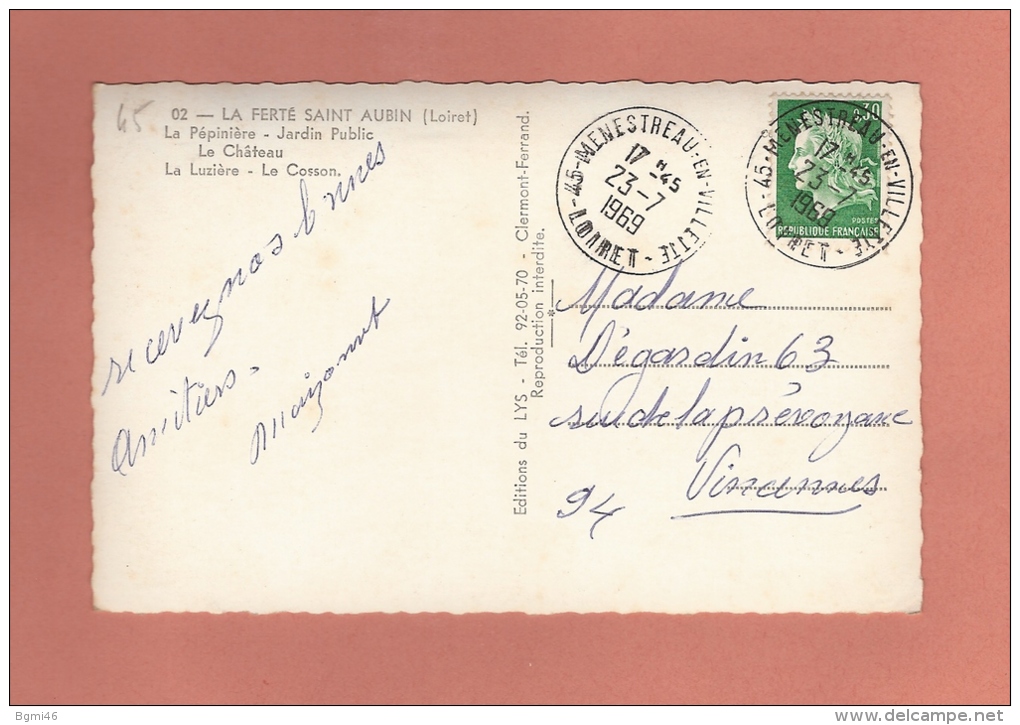 45
02 — LA FERTÉ SAINT AUBIN (Loiret)
La Pépinière - Jardin Public
Le Château
La Luzière - Le Cosson.
recevez nos bnnes
amitiers -
Editions du LYS - Tél. 92-05-70 - Clermont-Ferrand.
Reproduction interdite.
45-MENESTREAU-EN-VILLETTE
17 H 45
23-7
1969
-LOIRET-
45-MENESTREAU-EN-VILLETTE
17 H 45
23-7
1969
-LOIRET-
0,30
POSTES
REPUBLIQUE FRANÇAISE
Madame
Dégardin 63
rue de la prévoyance
Vincennes
94
Bgmi46
www.delcampe.net